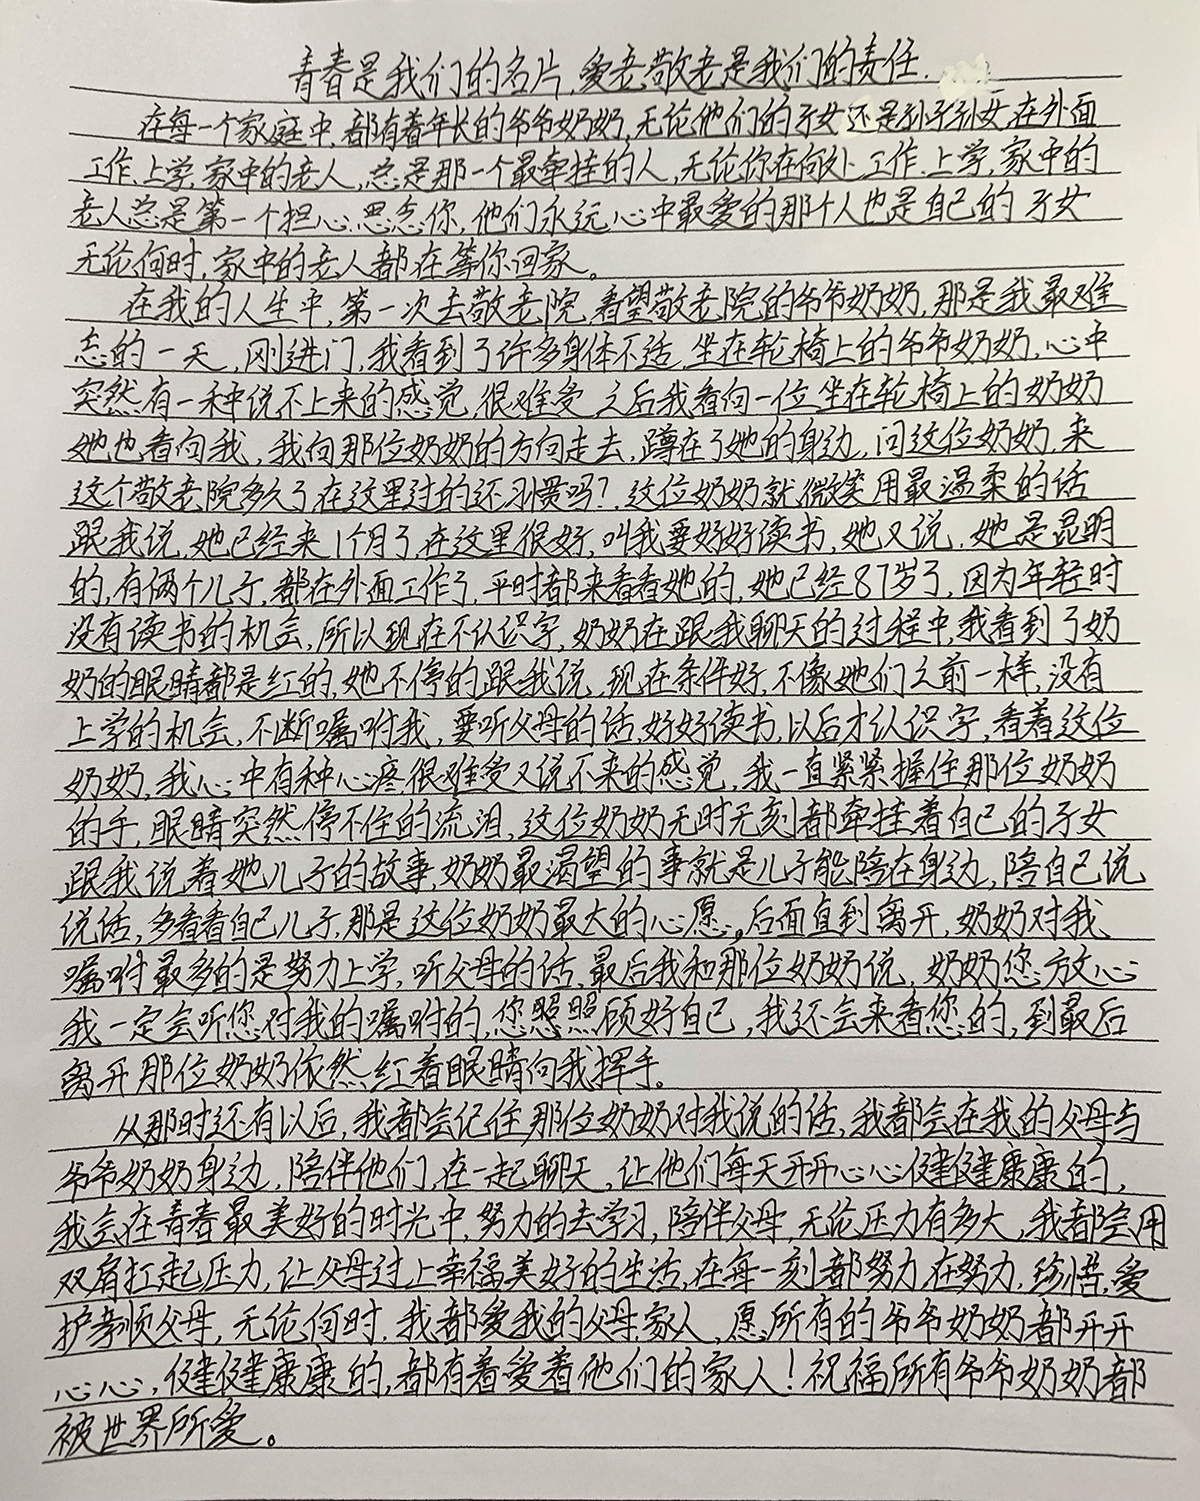 青春是我们的名片,爱老敬老是我们的责任.
在每一个家庭中,都有着年长的爷爷奶奶,无论他们的子女还是孙子孙女,在外面
工作,上学,家中的老人,总是那一个最牵挂的人,无论你在何处,工作,上学,家中的
老人总是第一个担心,思念你,他们永远心中最爱的那个人也是自己的子女
无论何时,家中的老人都在等你回家。
在我的人生中,第一次去敬老院,看望敬老院的爷爷奶奶,那是我最难
忘的一天,刚进门,我看到了许多身体不适,坐在轮椅上的爷爷奶奶,心中
突然有一种说不上来的感觉,很难受,之后我看向一位坐在轮椅上的奶奶
她也看向我,我向那位奶奶的方向走去,蹲在了她的身边,问这位奶奶,来
这个敬老院多久了,在这里过的还习惯吗?,这位奶奶就微笑用最温柔的话
跟我说,她已经来1个月了,在这里很好,叫我要好好读书,她又说,她是昆明
的,有俩个儿子,都在外面工作了,平时都来看看她的,她已经87岁了,因为年轻时
没有读书的机会,所以现在不认识字,奶奶在跟我聊天的过程中,我看到了奶
奶的眼睛都是红的,她不停的跟我说,现在条件好,不像她们之前一样,没有
上学的机会,不断嘱咐我,要听父母的话,好好读书,以后才认识字,看着这位
奶奶,我心中有种心疼很难受又说不来的感觉,我一直紧紧握住那位奶奶
的手,眼睛突然停不住的流泪,这位奶奶无时无刻都牵挂着自己的子女
跟我说着她儿子的故事,奶奶最渴望的事就是儿子能陪在身边,陪自己说
说话,多看看自己儿子,那是这位奶奶最大的心愿,后面直到离开,奶奶对我
嘱咐最多的是努力上学,听父母的话,最后我和那位奶奶说,奶奶您放心
我一定会听您对我的嘱咐的,您照照顾好自己,我还会来看您的,到最后
离开那位奶奶依然红着眼睛向我挥手。
从那时还有以后,我都会记住那位奶奶对我说的话,我都会在我的父母与
爷爷奶奶身边,陪伴他们,在一起聊天,让他们每天开开心心健健康康的,
我会在青春最美好的时光中,努力的去学习,陪伴父母,无论压力有多大,我都会用
双肩扛起压力,让父母过上幸福美好的生活,在每一刻都努力在努力,珍惜,爱
护孝顺父母,无论何时,我都爱我的父母,家人,愿所有的爷爷奶奶都开开
心心,健健康康的,都有着爱着他们的家人!祝福所有爷爷奶奶都
被世界所爱。